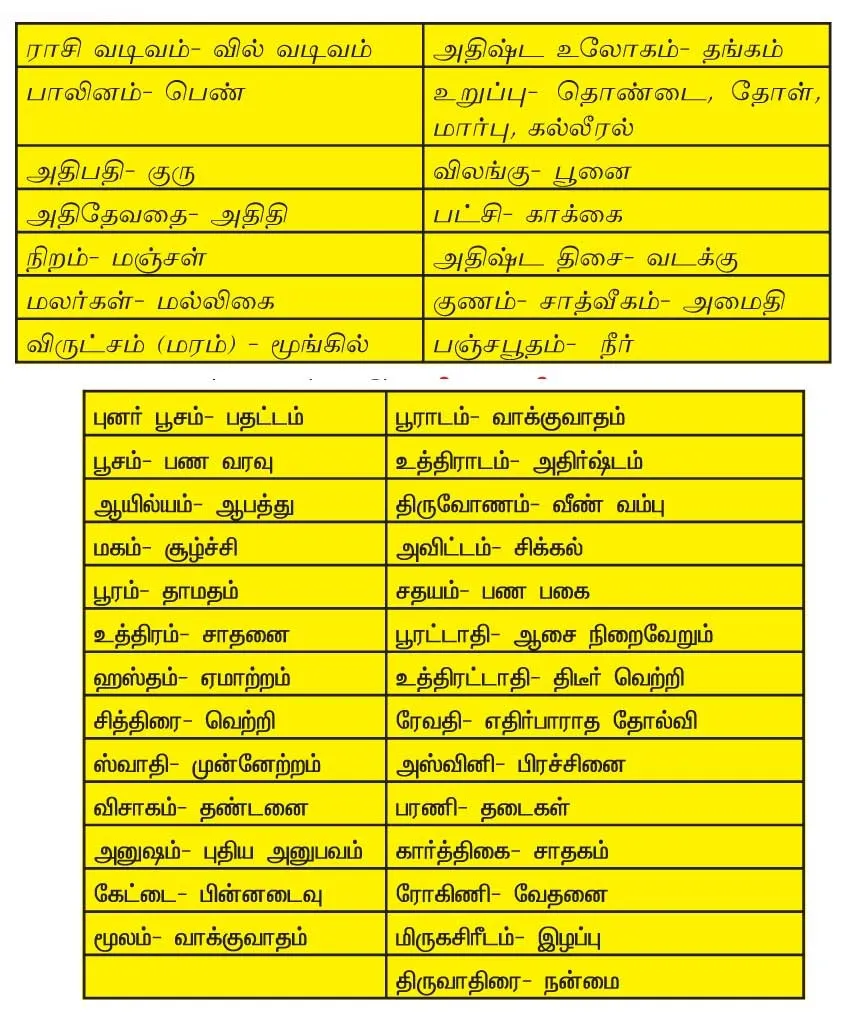 ராசி வடிவம்- வில் வடிவம்
அதிஷ்ட உலோகம்- தங்கம்
பாலினம்- பெண்
உறுப்பு- தொண்டை, தோள்,
மார்பு, கல்லீரல்
அதிபதி- குரு
விலங்கு- பூனை
அதிதேவதை- அதிதி
பட்சி- காக்கை
நிறம்- மஞ்சள்
அதிஷ்ட திசை- வடக்கு
மலர்கள்- மல்லிகை
குணம்- சாத்வீகம்- அமைதி
விருட்சம் (மரம்) - மூங்கில்
பஞ்சபூதம்- நீர்
புனர் பூசம்- பதட்டம்
பூராடம்- வாக்குவாதம்
பூசம்- பண வரவு
உத்திராடம்- அதிர்ஷ்டம்
ஆயில்யம்- ஆபத்து
திருவோணம்- வீண் வம்பு
மகம்- சூழ்ச்சி
அவிட்டம்- சிக்கல்
பூரம்- தாமதம்
சதயம்- பண பகை
உத்திரம்- சாதனை
பூரட்டாதி- ஆசை நிறைவேறும்
ஹஸ்தம்- ஏமாற்றம்
உத்திரட்டாதி- திடீர் வெற்றி
சித்திரை- வெற்றி
ரேவதி- எதிர்பாராத தோல்வி
ஸ்வாதி- முன்னேற்றம்
அஸ்வினி- பிரச்சினை
விசாகம்- தண்டனை
பரணி- தடைகள்
அனுஷம்- புதிய அனுபவம்
கார்த்திகை- சாதகம்
கேட்டை- பின்னடைவு
ரோகிணி- வேதனை
மூலம்- வாக்குவாதம்
மிருகசிரீடம்- இழப்பு
திருவாதிரை- நன்மை